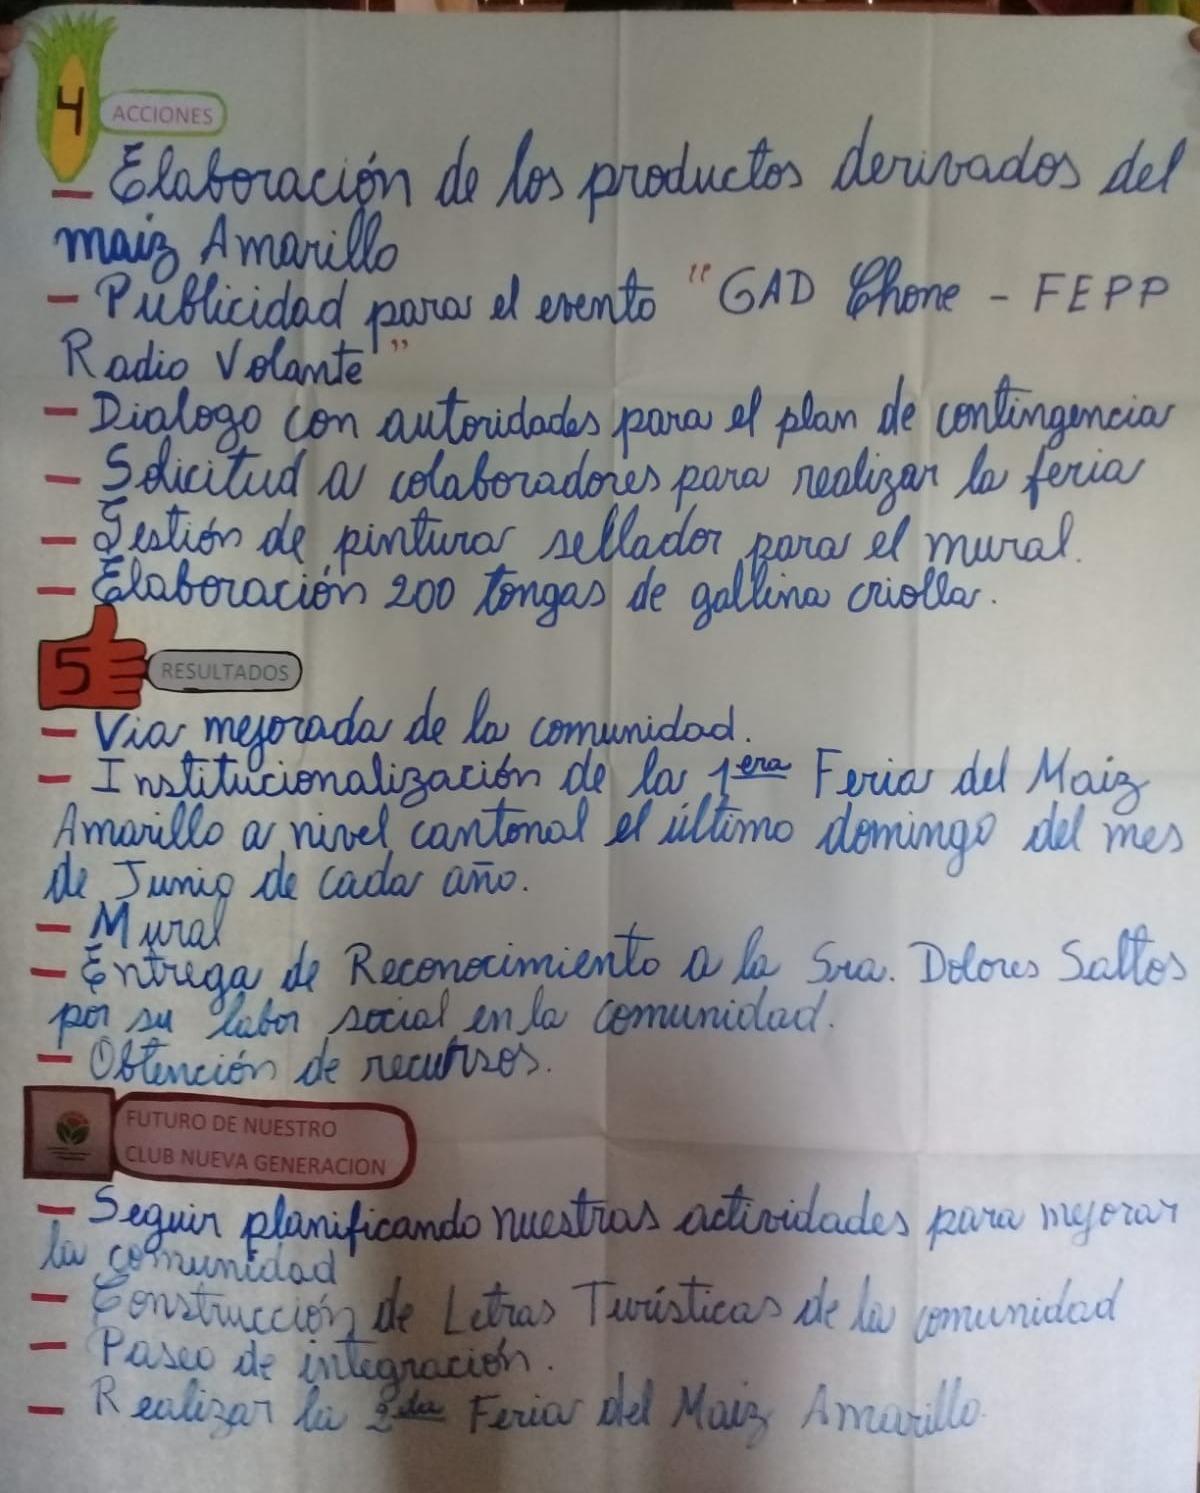 4 ACCIONES
- Elaboración de los productos derivados del
maiz Amarillo
- Publicidad para el evento "GAD Chone - FEPP
Radio Volante"
- Dialogo con autoridades para el plan de contingencia
- Solicitud a colaboradores para realizar la feria
- Gestión de pintura sellador para el mural.
- Elaboración 200 tongas de gallina criolla.
5 RESULTADOS
- Via mejorada de la comunidad.
- Institucionalización de la 1era Feria del Maiz
Amarillo a nivel cantonal el último domingo del mes
de Junio de cada año.
- Mural
- Entrega de Reconocimiento a la Sra. Dolores Saltos
por su labor social en la comunidad.
- Obtención de recursos.
FUTURO DE NUESTRO
CLUB NUEVA GENERACION
- Seguir planificando nuestras actividades para mejorar
la comunidad
- Construcción de Letras Turísticas de la comunidad
- Paseo de integración.
- Realizar la 2da Feria del Maiz Amarillo.